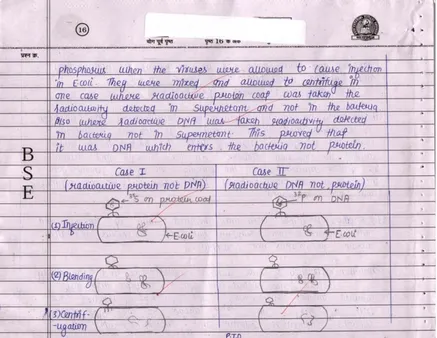 16
योग पूर्व पृष्ठ पृष्ठ 16 के अंक
प्रश्न क्र.
phosphorus when the viruses were allowed to cause injection
in E.coli. They were mixed and allowed to centrifuge in
one case where radioactive protein coat was taken the
radioactivity detected in Supernetant and not in the bacteria
Also where radioactive DNA was taken radioactivity detected
in bacteria not in Supernetant. This proved that
it was DNA which enters the bacteria not protein.
B
S
E
Case I Case II
(radioactive protein not DNA) (radioactive DNA not protein)
35S on protein coat 32P on DNA
(1) Injection
E.coli
(2) Blending
(3) Centrif-
-ugation
P.T.O